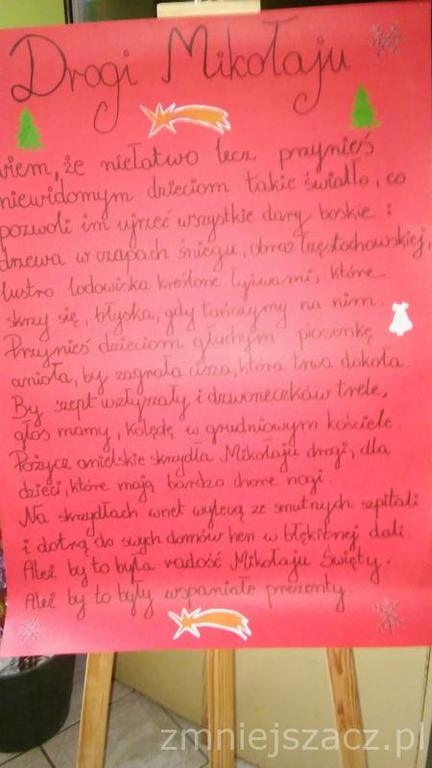 Drogi Mikołaju
wiem, że niełatwo lecz przynieś
niewidomym dzieciom takie światło, co
pozwoli im ujrzeć wszystkie dary boskie :
drzewa w czapach śniegu, obraz Częstochowskiej,
lustro lodowiska kreślone łyżwami, które
skrzy się, błyska, gdy tańczymy na nim.
Przynieś dzieciom głuchym piosenkę
anioła, by zagrała cisza, która trwa dokoła.
By szept usłyszały i dzwoneczków trele,
głos mamy, kolędę w grudniowym kościele.
Pożycz anielskie skrzydła Mikołaju drogi, dla
dzieci, które mają bardzo chore nogi.
Na skrzydłach wnet wylecą ze smutnych szpitali
i dotrą do swych domów hen w błękitnej dali.
Ależ by to była radość Mikołaju Święty.
Ależ by to były wspaniałe prezenty.
zmniejszacz.pl